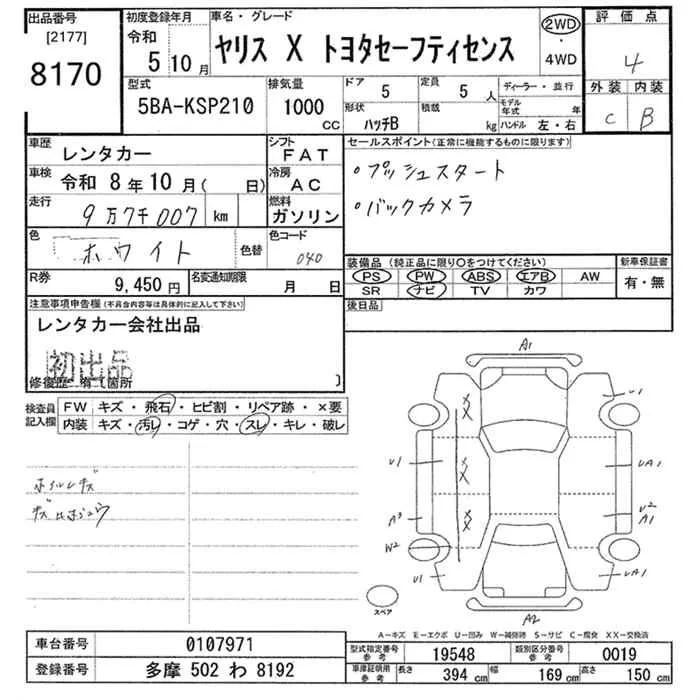 出品番号
[2177]
8170
初度登録年月
令和
5 10月
車名・グレード
ヤリス X トヨタセーフティセンス
2WD
4WD
評価点
4
外装 内装
C B
型式
5BA-KSP210
排気量
1000
CC
ドア 5
形状 ハッチB
定員 5 人
積載 kg
ディーラー・並行
モデル年式 年
ハンドル 左・右
車歴
レンタカー
シフト
FAT
車検 令和 8年10月( 日)
冷房
AC
走行
9万7千007 km
燃料
ガソリン
色
ホワイト
色替
色コード
040
R券
9,450円
名変通知期限
月 日
セールスポイント(正常に機能するものに限ります)
・プッシュスタート
・バックカメラ
装備品(純正品に限り○をつけてください)
PS PW ABS エアB AW
SR ナビ TV カワ
新車保証書
有・無
後日品
注意事項申告欄(不具合内容等は具体的に記入して下さい)
レンタカー会社出品
初出品
修復歴 有(箇所 )
検査員記入欄
FW キズ・飛石・ヒビ割・リペア跡・×要
内装 キズ・汚レ・コゲ・穴・スレ・キレ・破レ
ホイルキズ
A1
U1
U1
UA1
A3
U2
A1
W2
U1
UA1
A2
XX
XX
XX
スペア
A-キズ E-エクボ U-凹み W-補修跡 S-サビ C-腐食 XX-交換済
車台番号
0107971
登録番号
多摩 502 わ 8192
型式指定番号
参考
19548
類別区分番号
参考
0019
車庫証明用
参考
長さ 394 cm
幅 169 cm
高さ 150 cm